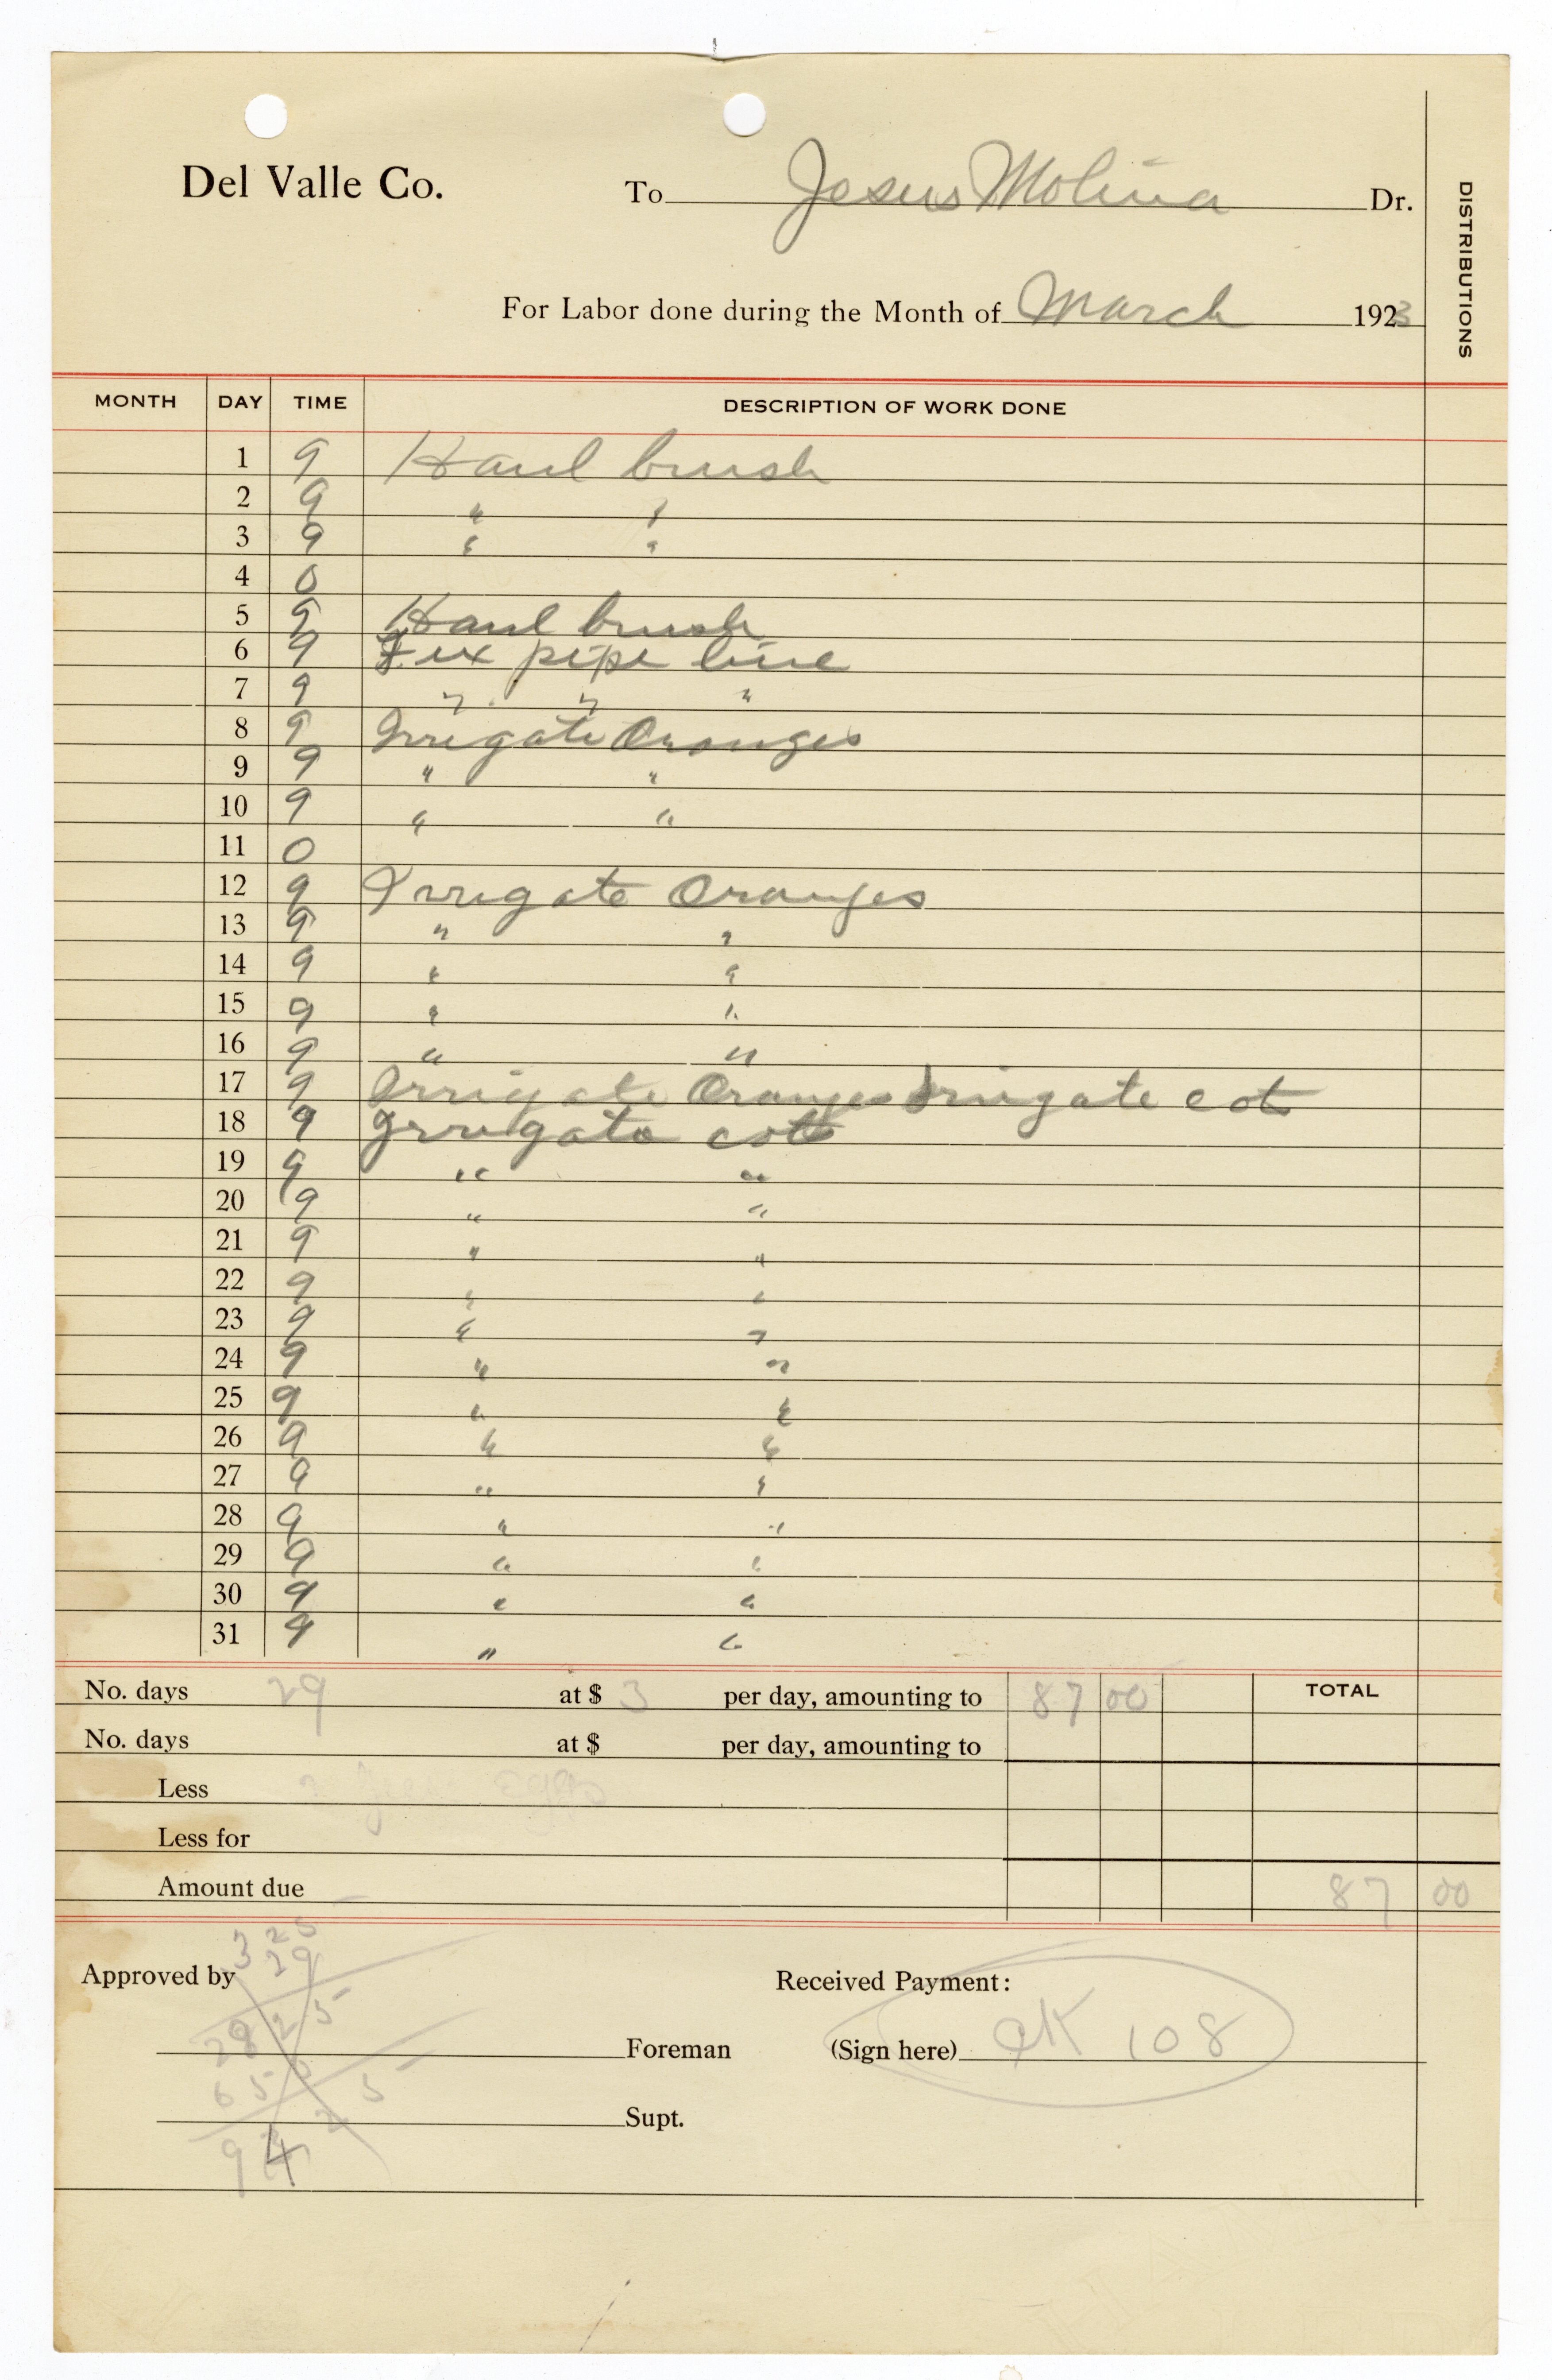 Del Valle Co. To Jesus Molina Dr.
DISTRIBUTIONS
For Labor done during the Month of March 1923
MONTH DAY TIME DESCRIPTION OF WORK DONE
1 9 Haul brush
2 9 " "
3 9 " "
4 0
5 9 Haul brush
6 9 Fix pipe line
7 9 " " "
8 9 Irrigate Oranges
9 9 " "
10 9 " "
11 0
12 9 Irrigate Oranges
13 9 " "
14 9 " "
15 9 " "
16 9 " "
17 9 Irrigate Oranges Irrigate cot
18 9 Irrigate cots
19 9 " "
20 9 " "
21 9 " "
22 9 " "
23 9 " "
24 9 " "
25 9 " "
26 9 " "
27 9 " "
28 9 " "
29 9 " "
30 9 " "
31 9 " "
No. days 29 at $ 3 per day, amounting to 87 00 TOTAL
No. days at $ per day, amounting to
Less Eggs
Less for
Amount due 87 00
3 25
29
Approved by Received Payment:
29 25
Foreman (Sign here) OK 108
65 0
Supt.